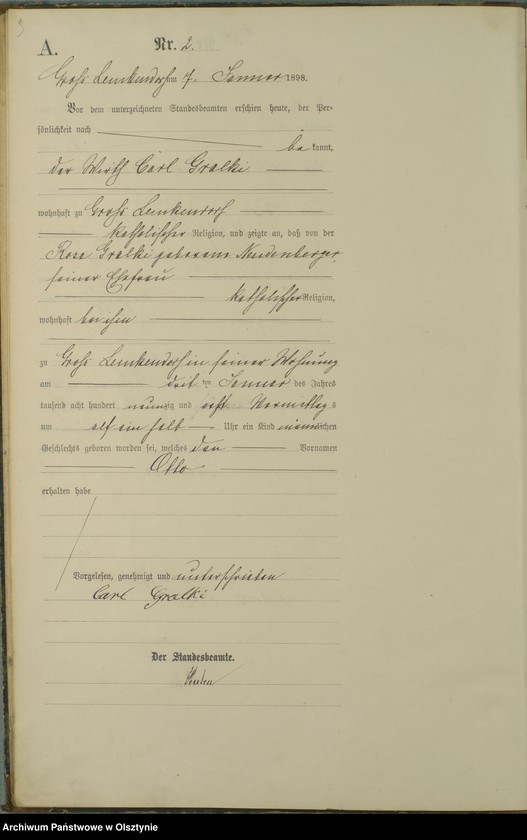 3
A.
Nr. 2.
Groß Lemkendorf am 7. Januar 1898.
Vor dem unterzeichneten Standesbeamten erschien heute, der Per-
sönlichkeit nach
be kannt,
der Wirth Carl Gralki
wohnhaft zu Groß Lemkendorf
katholischer Religion, und zeigte an, daß von der
Rosa Gralki geborene
seiner Ehefrau
katholischer Religion,
wohnhaft bei ihm
zu Groß Lemkendorf in seiner Wohnung
am drit ten Januar des Jahres
tausend acht hundert neunzig und acht Vormittags
um elf ein halb Uhr ein Kind männlichen
Geschlechts geboren worden sei, welches den Vornamen
Otto
erhalten habe
Vorgelesen, genehmigt und unterschrieben
Carl Gralki
Der Standesbeamte.
Archiwum Państwowe w Olsztynie